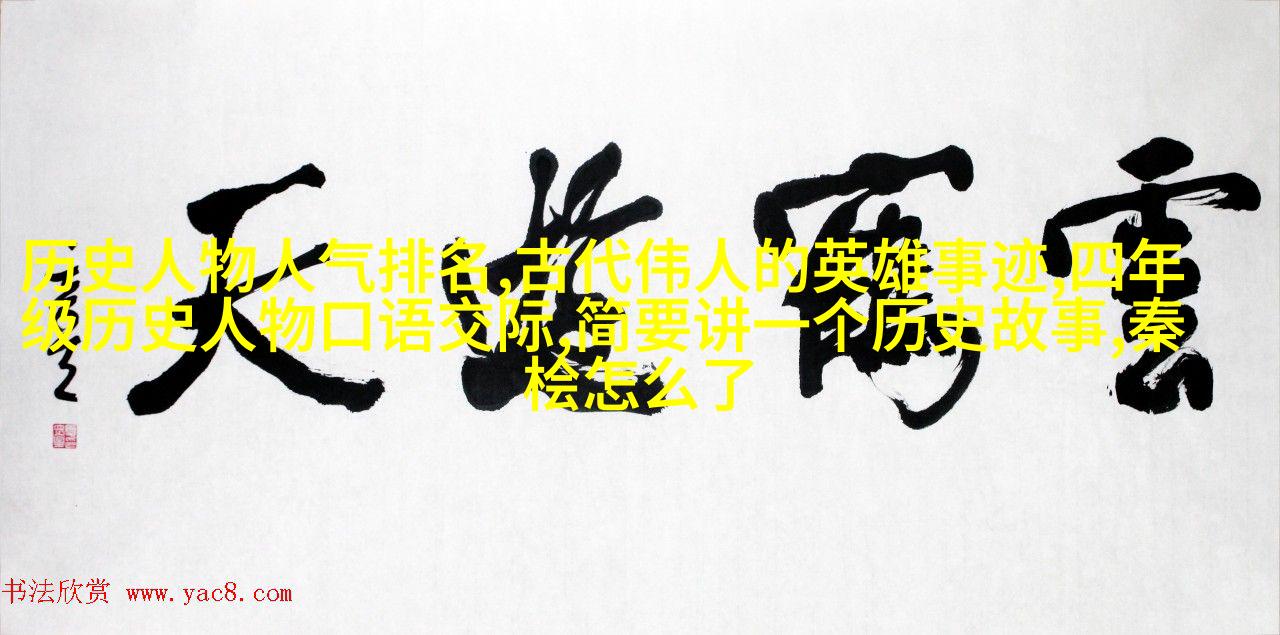 雲鶴遊天
历史人物人气排名,古代伟人的英雄事迹,四年
级历史人物口语交际,简要讲一个历史故事,秦
桧怎么了
书法欣赏 www.yac8.com